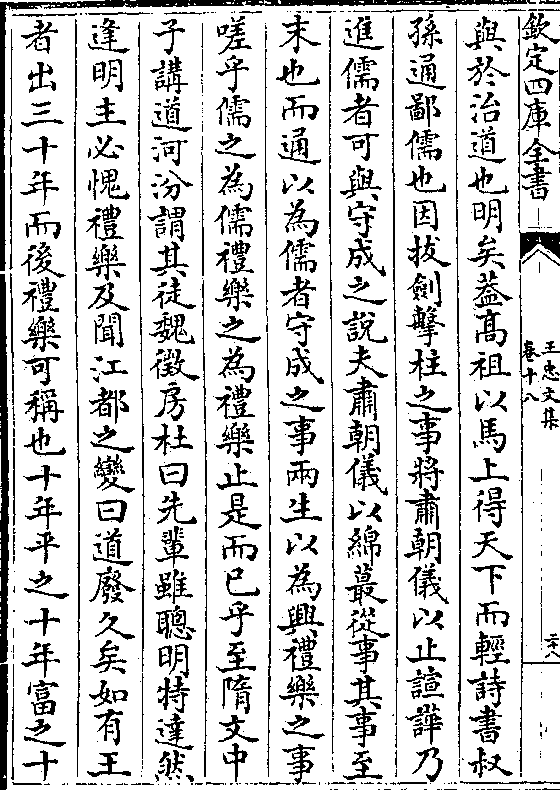 欽定四庫全書
王忠文集
卷十八
與於治道也明矣葢髙祖以馬上得天下而輕詩書叔
孫通鄙儒也因拔劍擊柱之事將肅朝儀以止諠譁乃
進儒者可與守成之說夫肅朝儀以綿蕞從事其事至
末也而通以為儒者守成之事兩生以為興禮樂之事
嗟乎儒之為儒禮樂之為禮樂止是而已乎至隋文中
子講道河汾謂其徒魏徵房杜曰先輩雖聰明特達然
逢明主必愧禮樂及聞江都之變曰道廢久矣如有王
者出三十年而後禮樂可稱也十年平之十年富之十